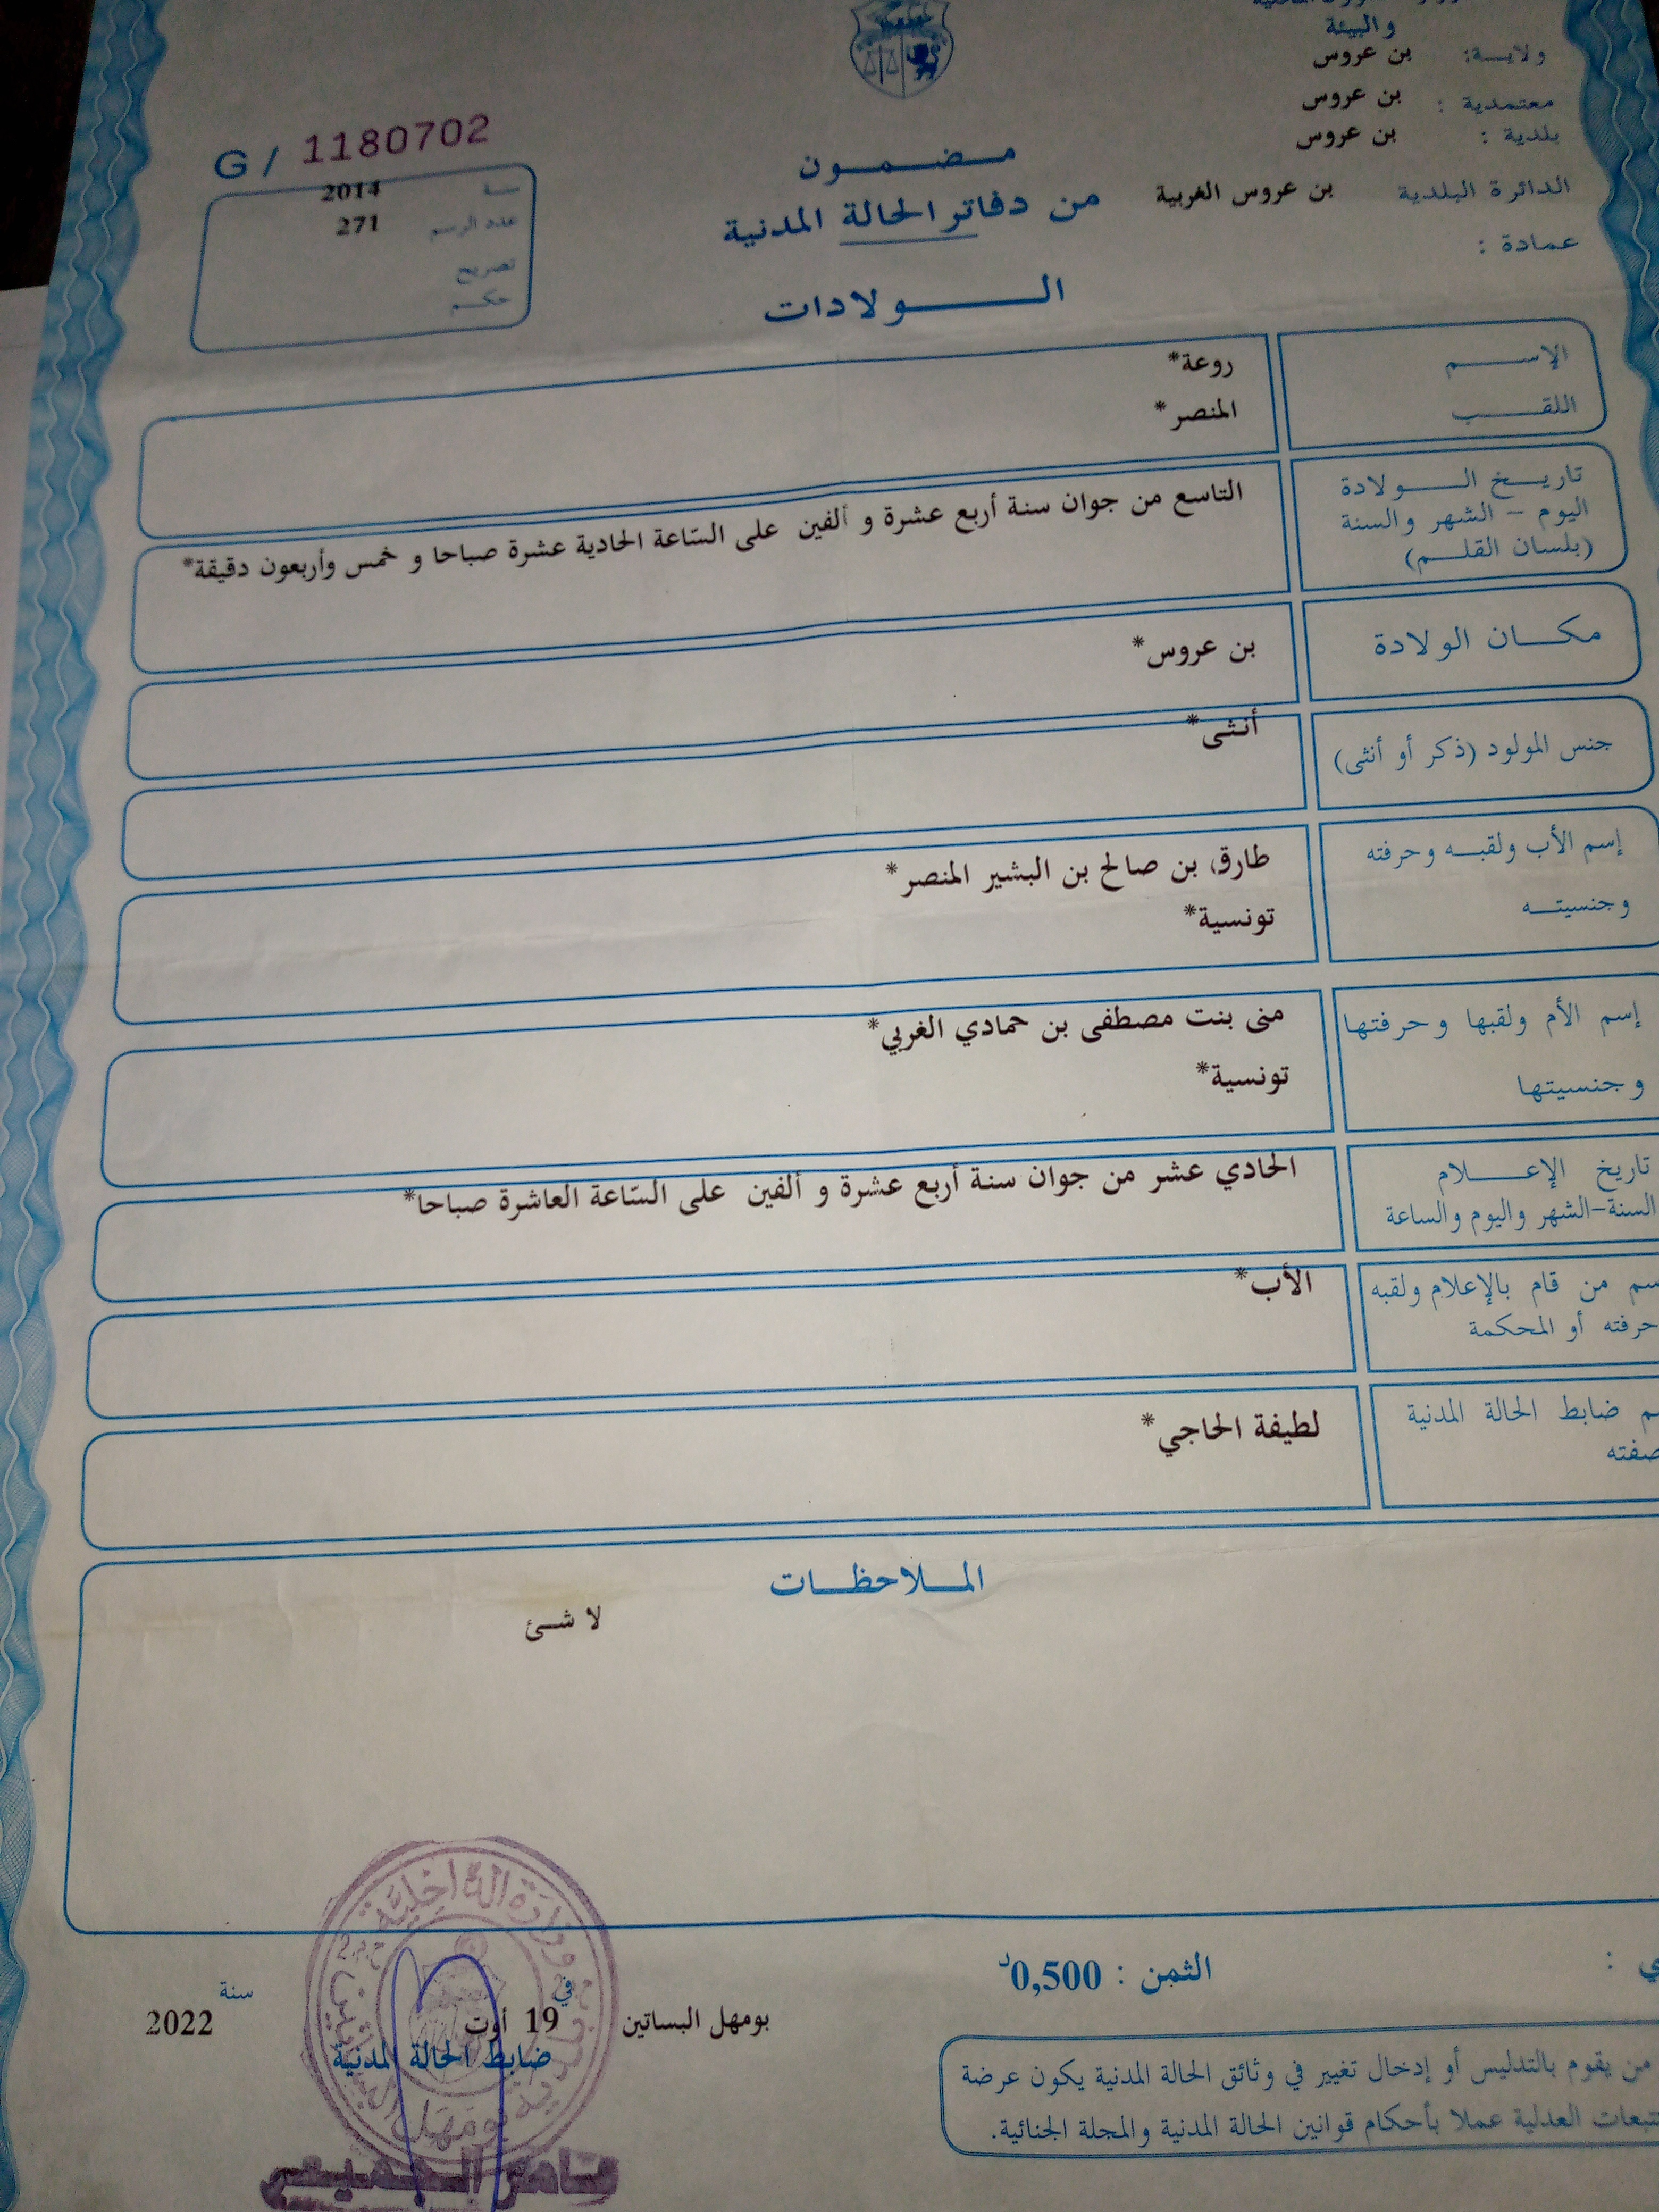 والبيئة
ولايـــة: بن عروس
معتمدية : بن عروس
بلدية : بن عروس
الدائرة البلدية بن عروس الغربية
عمادة :
مـضـمـون
من دفاتر الحالة المدنية
الـولادات
G / 1180702
سنة 2014
عدد الرسم 271
تصريح
حكـم
الإســـم روعة*
اللقـــب المنصر*
تاريـخ الـولادة
اليوم - الشهر والسنة
(بلسان القلـم)
التاسع من جوان سنة أربع عشرة و ألفين على السّاعة الحادية عشرة صباحا و خمس وأربعون دقيقة*
مكـان الولادة بن عروس*
جنس المولود (ذكر أو أنثى) أنثى*
إسم الأب ولقبـه وحرفته طارق بن صالح بن البشير المنصر*
وجنسيتـه تونسية*
إسم الأم ولقبها وحرفتها منى بنت مصطفى بن حمادي الغربي*
وجنسيتها تونسية*
تاريخ الإعـلام
السنة-الشهر واليوم والساعة
الحادي عشر من جوان سنة أربع عشرة و ألفين على السّاعة العاشرة صباحا*
سم من قام بالإعلام ولقبه الأب*
حرفته أو المحكمة
م ضابط الحالة المدنية لطيفة الحاجي*
صفته
المـلاحظـات
لا شئ
الثمن : 0,500د
بومهل البساتين في 19 أوت سنة 2022
ضابط الحالة المدنية
وزارة الداخلية
من يقوم بالتدليس أو إدخال تغيير في وثائق الحالة المدنية يكون عرضة
تتبعات العدلية عملا بأحكام قوانين الحالة المدنية والمجلة الجنائية.